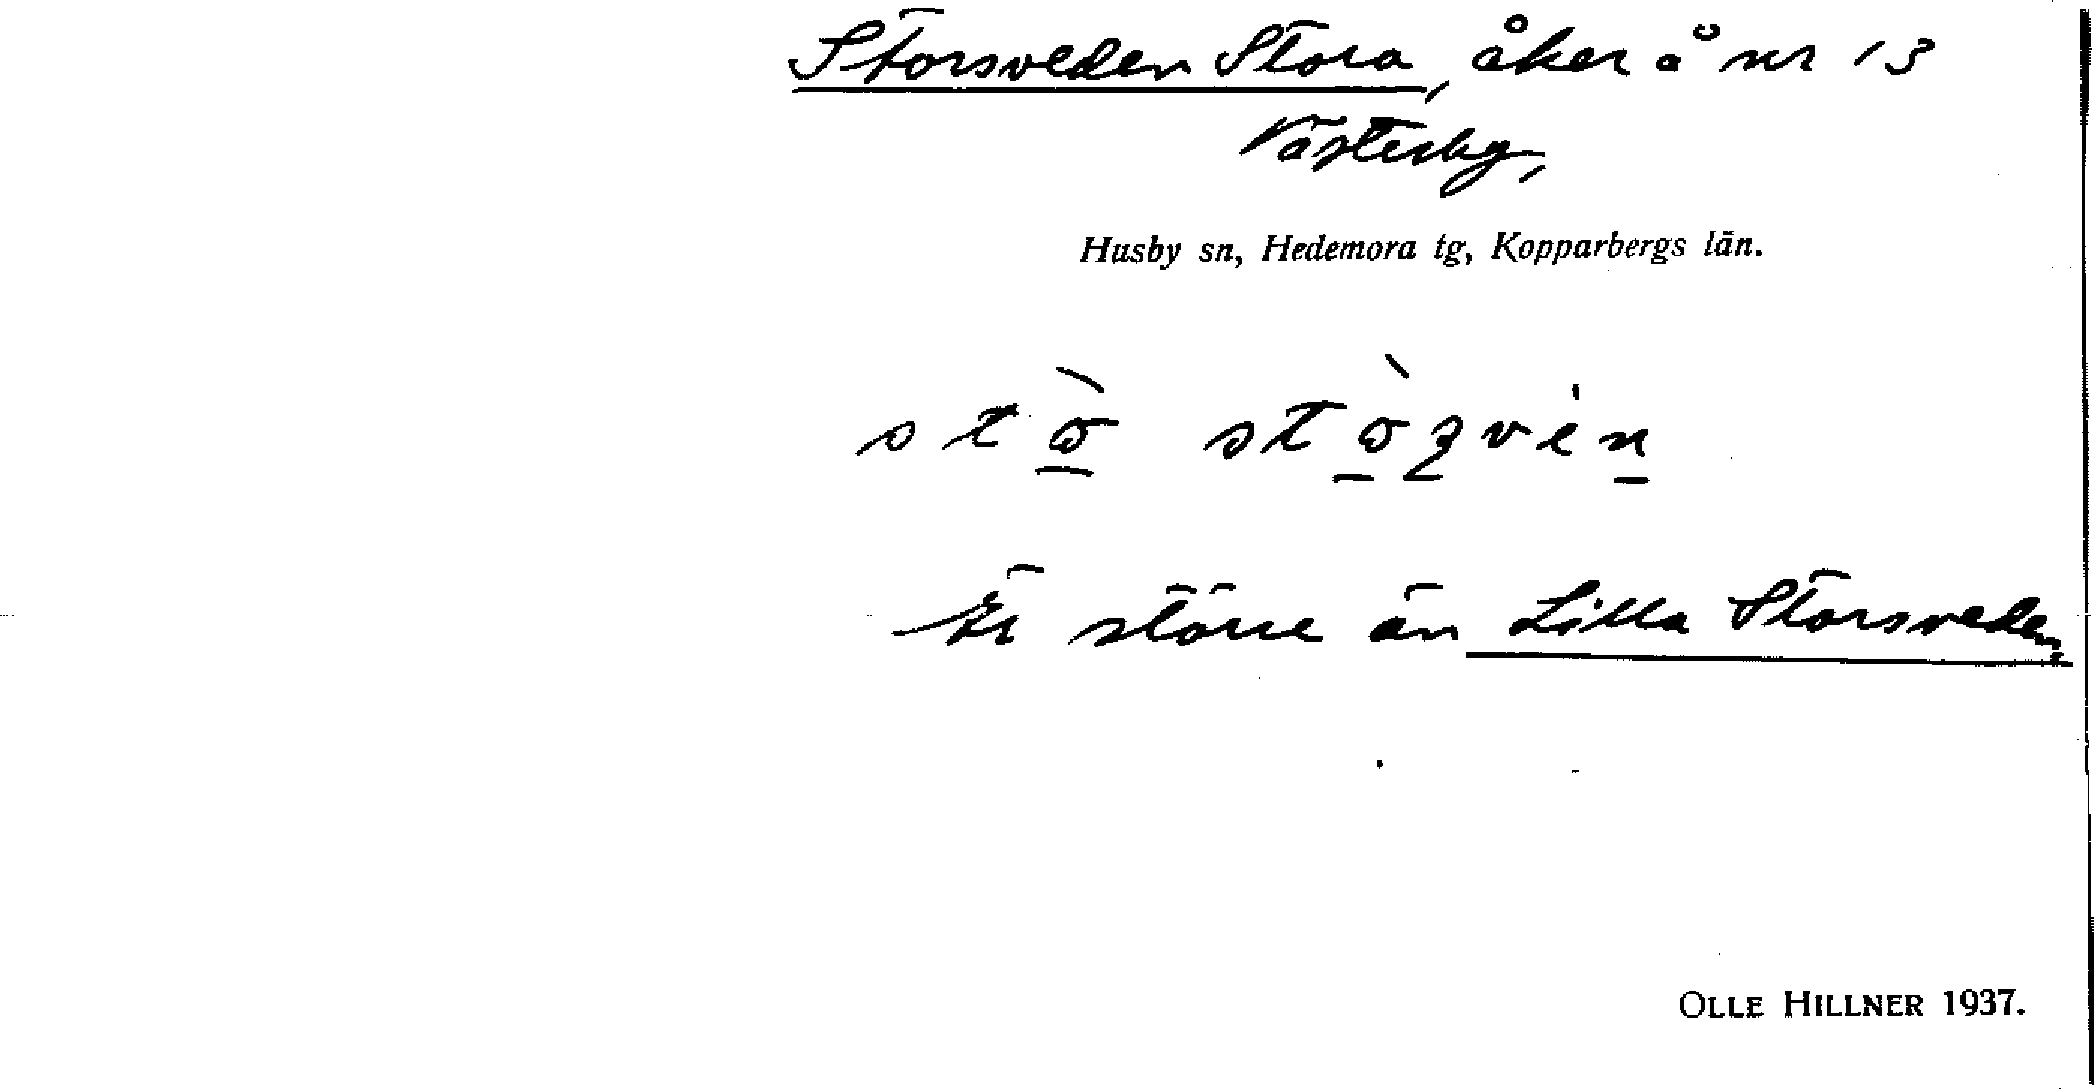 Storsveden Stora, åker å nr 13
Västerby,
Husby sn, Hedemora tg, Kopparbergs län.
Är större än Lilla Storsveden.
OLLE HILLNER 1937.